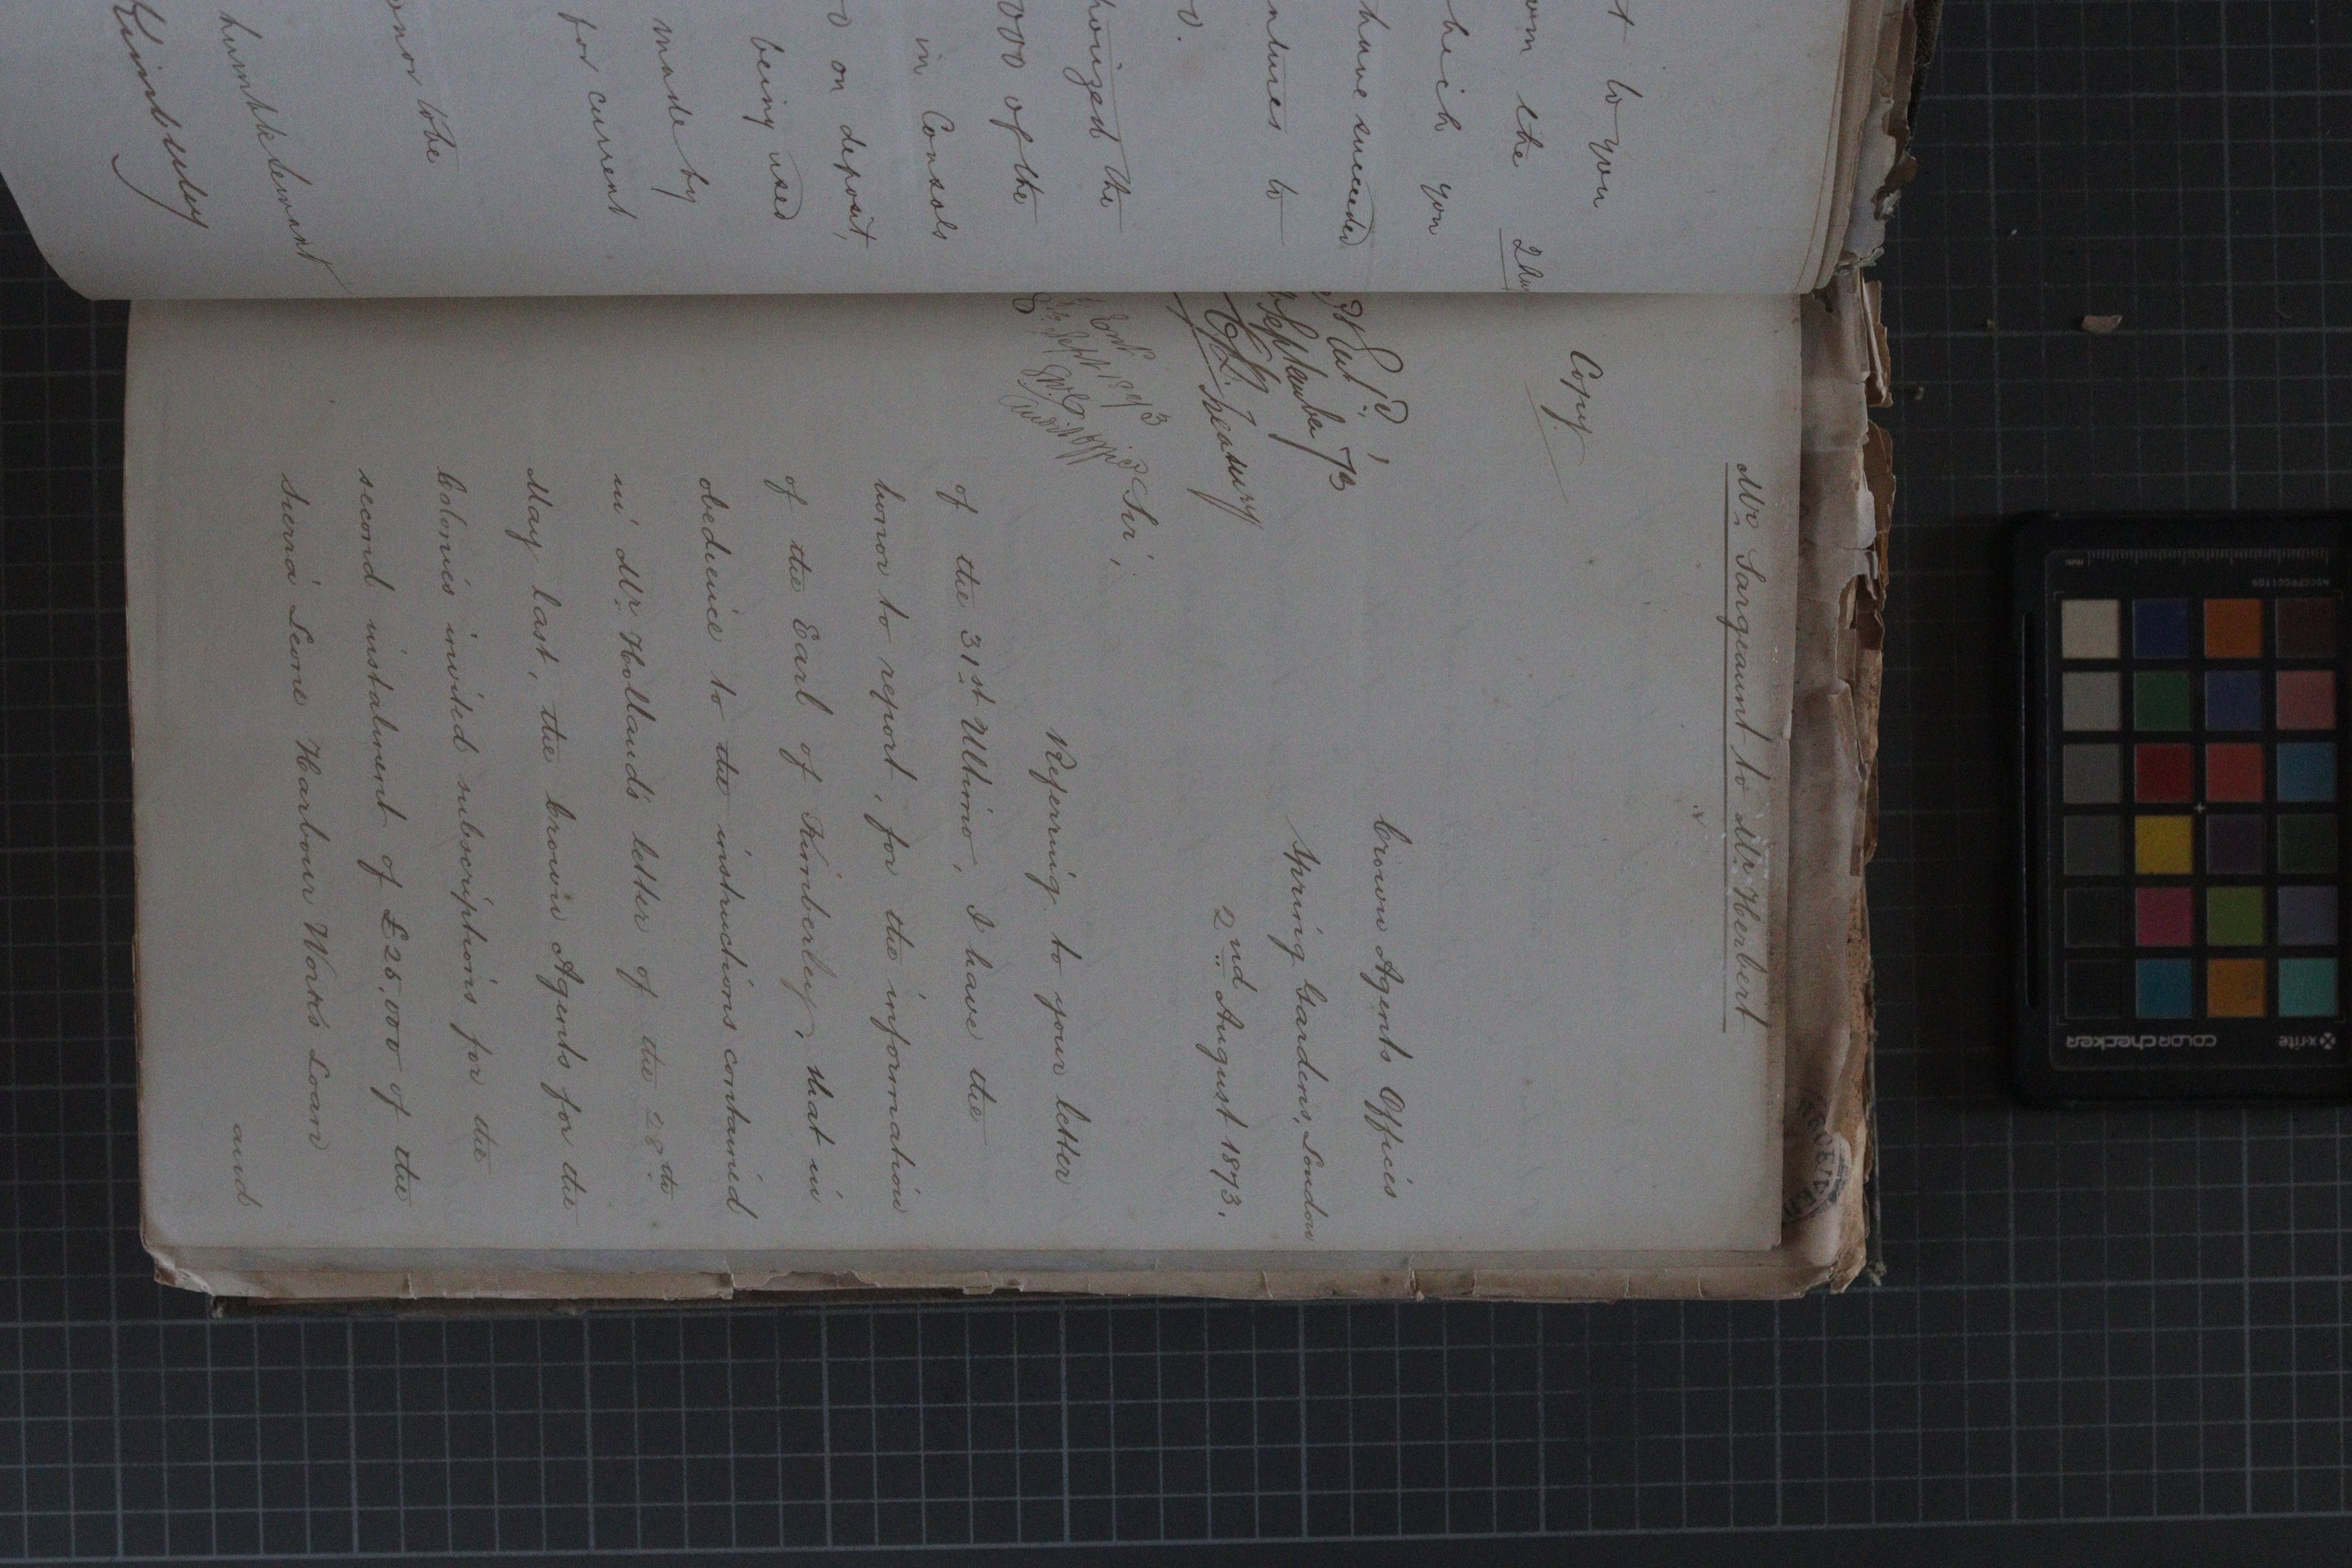 t to you
om the 2nd
hich you
have succeeded
ntures to
0.
horized the
000 of the
in Consols
0 on deposit,
being used
made by
for current
onor to be
humble Servant
Kimberley
Mr Sargeaunt to Mr Herbert
Copy
Crown Agents Offices
Spring Gardens, London
2nd August 1873.
September 73
Treasury
Sept 1873
Audit Office
Sir,
Referring to your letter
of the 31st Ultimo, I have the
honor to report, for the information
of the Earl of Kimberley, that in
obedience to the instructions contained
in Mr Holland's letter of the 28th
May last, the Crown Agents for the
Colonies invited subscriptions for the
second instalment of £25,000 of the
Sierra Leone Harbour Works Loan
and
x-rite
colorchecker
mm